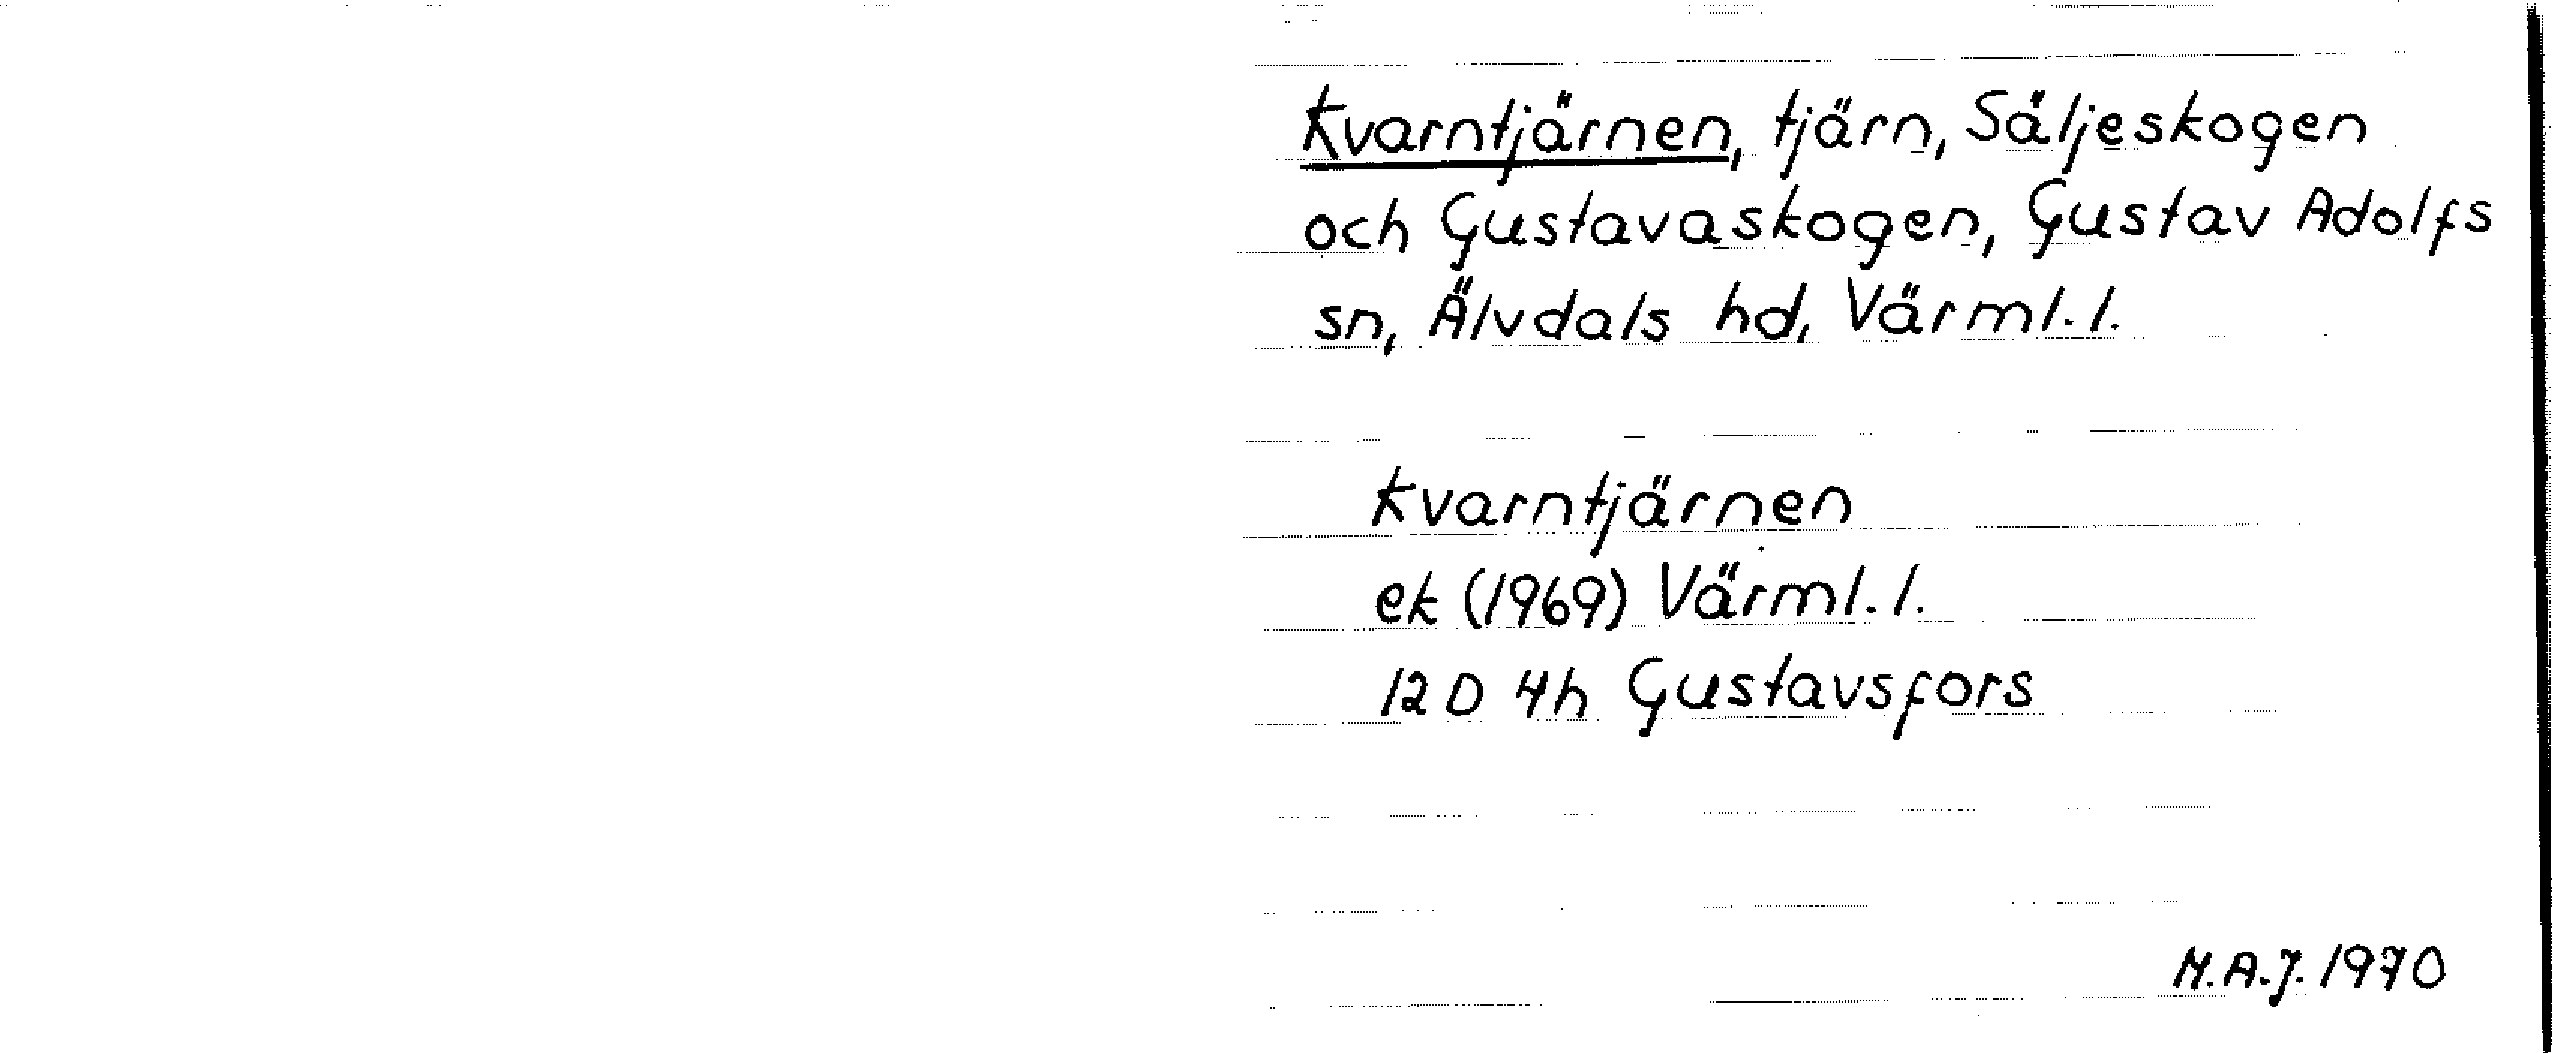 Kvarntjärnen, tjärn, Säljeskogen
och Gustavaskogen, Gustav Adolfs
sn, Älvdals hd, Värml. l.
Kvarntjärnen
ek (1969) Värml. l.
12 D 4h Gustavsfors
M.A.J. 1970